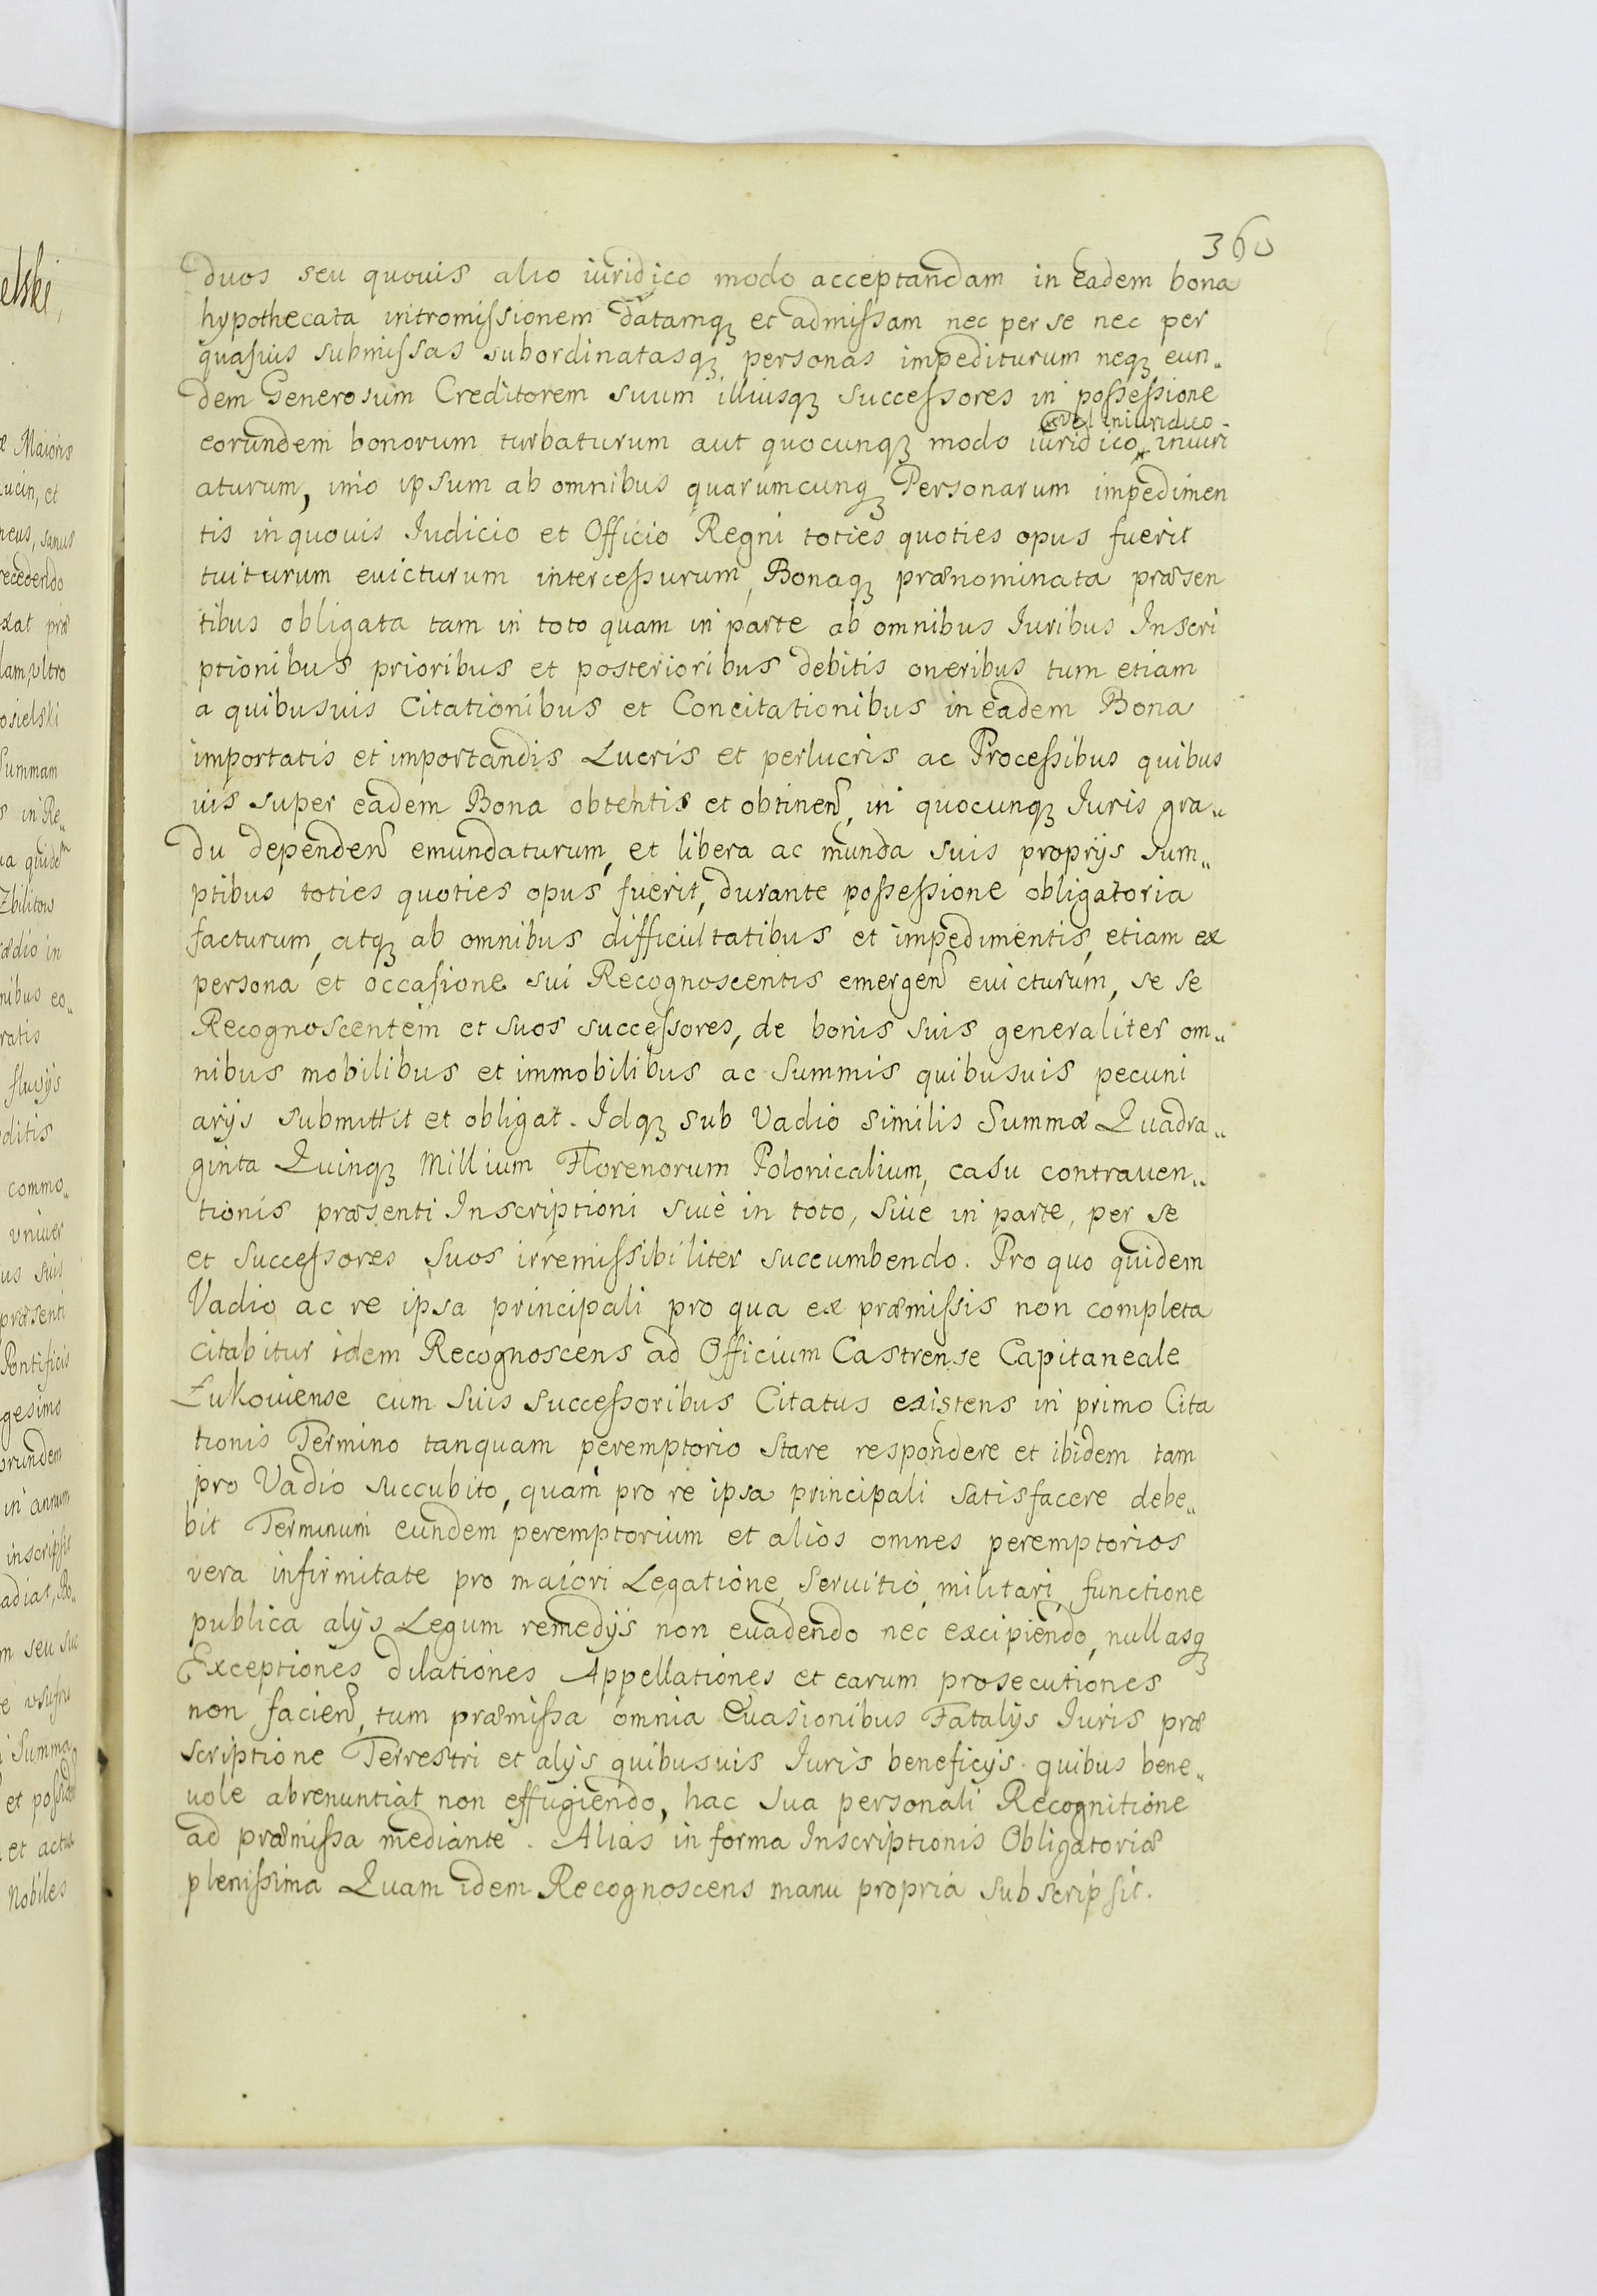 360
duos seu quouis alio iuridico modo acceptandam in eadem bona
hypothecata intromissionem datamq, et admissam nec per se nec per
quasuis submissas subordinatasq, personas impediturum neq, eun„
dem Generosum Creditorem suum illiusq, successores in possessione
vel iniuriduo
eorundem bonorum turbaturum aut quocunq, modo iuridico iniuri
aturum, imo ipsum ab omnibus quarumcunq, Personarum impedimen
tis in quouis Iudicio et Officio Regni toties quoties opus fuerit
tuiturum euicturum intercessurum, Bonaq, prænominata præsen
tibus obligata tam in toto quam in parte ab omnibus Iuribus Inscri
ptionibus prioribus et posterioribus debitis oneribus tum etiam
a quibusuis Citationibus et Concitationibus in eadem Bona
importatis et importandis Lucris et perlucris ac Processibus quibus
uis super eadem Bona obtentis et obtinen, in quocunq, Iuris gra„
du dependen emundaturum, et libera ac munda suis proprijs sum„
ptibus toties quoties opus fuerit, durante possessione obligatoria
facturum, atq, ab omnibus difficultatibus et impedimentis, etiam ex
persona et occasione sui Recognoscentis emergen euicturum, se se
Recognoscentem et suos successores, de bonis suis generaliter om„
nibus mobilibus et immobilibus ac Summis quibusuis pecuni
arijs submittit et obligat. Idq, sub Vadio similis Summæ Quadra„
ginta Quinq, Millium Florenorum Polonicalium, casu contrauen„
tionis præsenti Inscriptioni siue in toto, siue in parte, per se
et successores suos irremissibiliter succumbendo. Pro quo quidem
Vadio ac re ipsa principali pro qua ex præmissis non completa
citabitur idem Recognoscens ad Officium Castrense Capitaneale
Łukouiense cum suis successoribus Citatus existens in primo Cita
tionis Termino tanquam peremptorio stare respondere et ibidem tam
pro Vadio succubito, quam pro re ipsa principali satisfacere debe„
bit Terminum eundem peremptorium et alios omnes peremptorios
vera infirmitate pro maiori Legatione, Seruitio, militari, functione
publica alijs Legum remedijs non euadendo nec excipiendo, nullasq,
Exceptiones dilationes Appellationes et earum prosecutiones
non facien, tum præmissa omnia Euasionibus Fatalijs Iuris præ
scriptione Terrestri et alijs quibusuis Iuris beneficijs quibus bene„
uole abrenuntiat non effugiendo, hac sua personali Recognitione
ad præmissa mediante. Alias in forma Inscriptionis Obligatoriæ
plenissima Quam idem Recognoscens manu propria subscripsit.